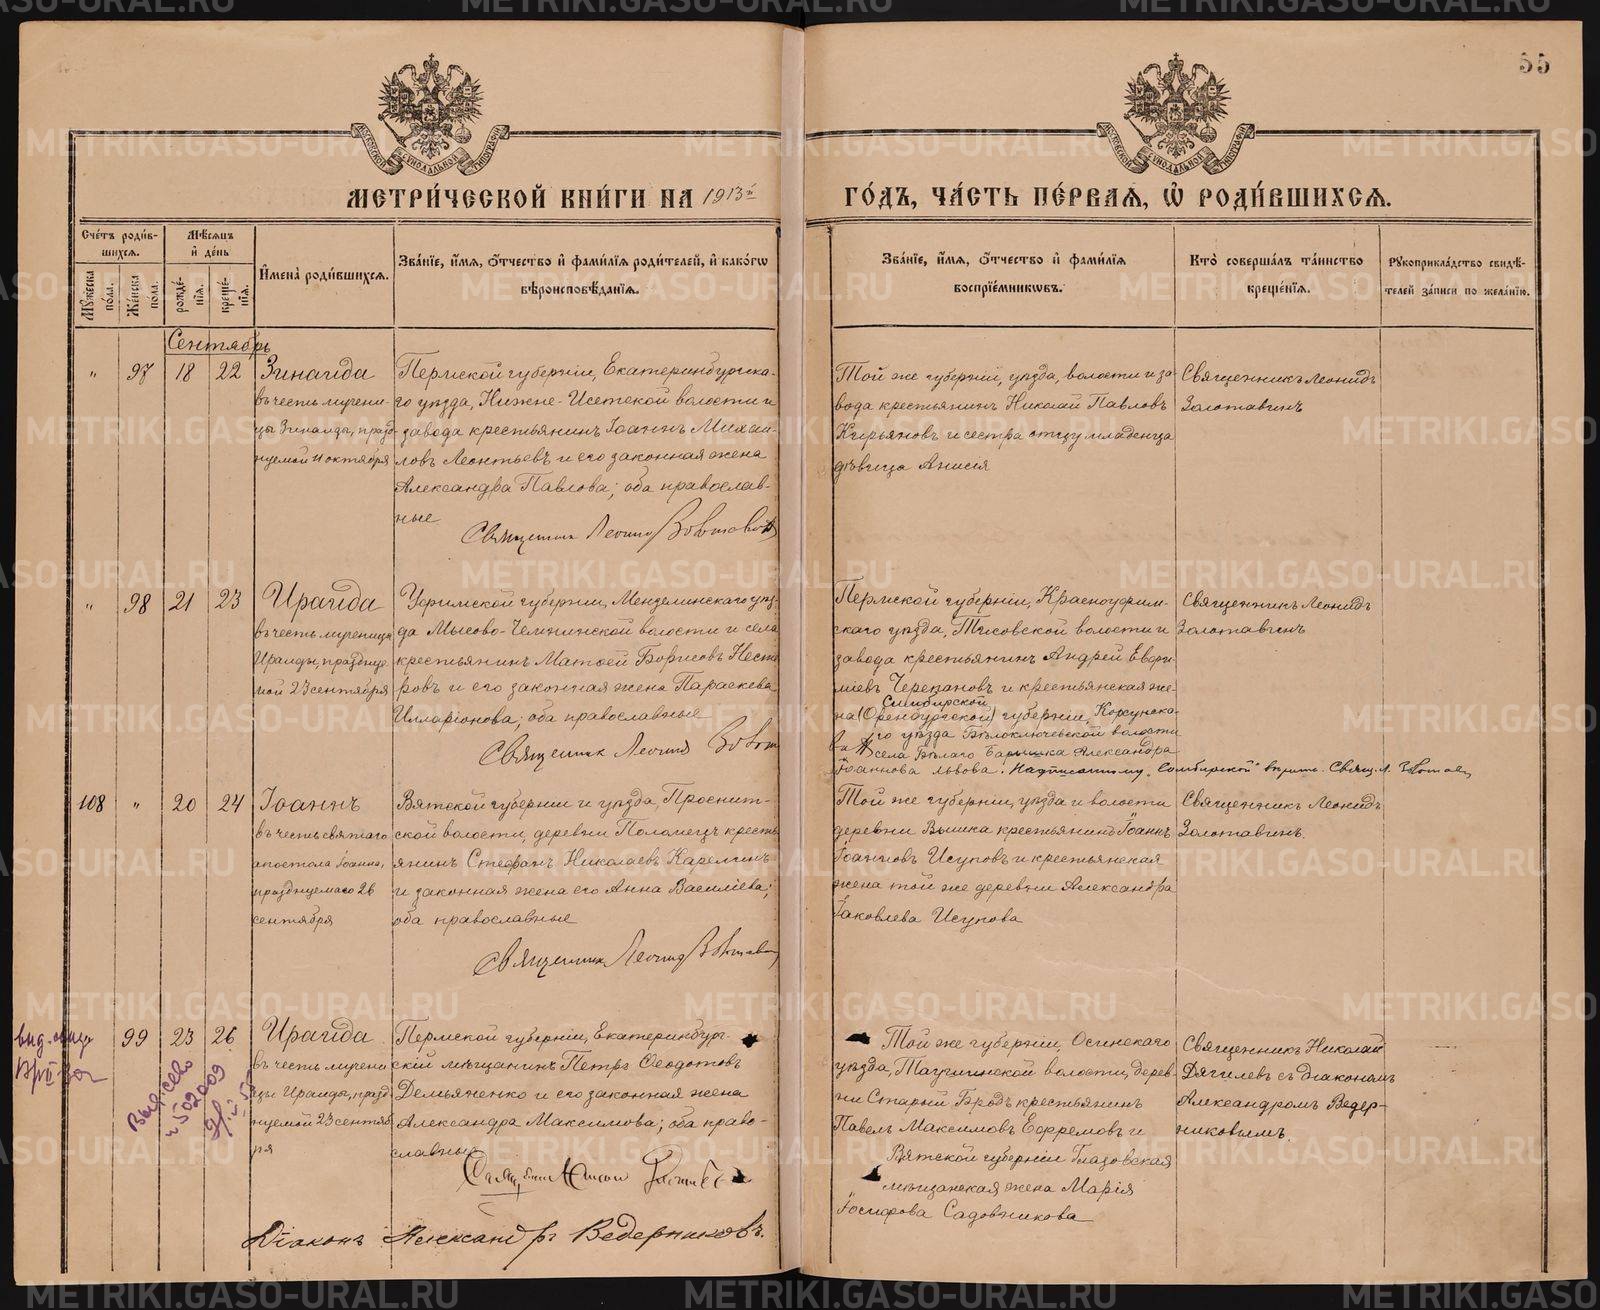 55
МОСКОВСКОЙ СѴНОДАЛЬНОЙ ТИПОГРАФІИ
МОСКОВСКОЙ СѴНОДАЛЬНОЙ ТИПОГРАФІИ
МЕТРИ́ЧЕСКОЙ КНИ́ГИ НА 1913й ГО́ДЪ, ЧА́СТЬ ПЕ́РВАЯ, Ѡ РОДИ́ВШИХСЯ.
Сче́тъ роди́в-
шихся.
Му́жеска по́ла.
Же́нска по́ла.
Мѣ́сяцъ
и҆ де́нь
рожде́-
нїя.
креще́-
нїя.
И҆мена̀ роди́вшихся.
Зва́нїе, и҆́мя, ѻ҆́тчество и҆ фами́лїя роди́телей, и҆ како́гѡ
вѣроисповѣ́данїя.
Зва́нїе, и҆́мя, ѻ҆́тчество и҆ фами́лїя
воспрїе́мникѡвъ.
Кто̀ соверша́лъ та́инство
креще́нїя.
Рукоприкла́дство свидѣ́-
телей за́писи по жела́нїю.
Сентябрь
" 97 18 22
Зинаида
въ честь мучени-
цы Зинаиды, празд-
нуемой 11 октября
Пермской губерніи, Екатеринбургска-
го уѣзда, Нижне-Исетской волости и
завода крестьянинъ Іоаннъ Михаи-
ловъ Леонтьевъ и его законная жена
Александра Павлова; оба православ-
ные
Священник Леонид Золотавин
Той же губерніи, уѣзда, волости и за-
вода крестьянинъ Николай Павловъ
Кирьяновъ и сестра отцу младенца
дѣвица Анисія
Священникъ Леонидъ
Золотавинъ
" 98 21 23
Ираида
въ честь мученицы
Ираиды, празднуе-
мой 23 сентября
Уфимской губерніи, Мензелинскаго уѣз-
да Мысово-Челнинской волости и села
крестьянинъ Матѳей Борисовъ Несте-
ровъ и его законная жена Параскева
Илларіонова; оба православные
Священник Леонид
Пермской губерніи, Красноуфим-
скаго уѣзда, Тисовской волости и
завода крестьянинъ Андрей Евфи-
міевъ Черепановъ и крестьянская же-
Симбирской
на (Оренбургской) губерніи, Корсунска-
го уѣзда Бѣлоключевской волости
села Бѣлаго Александра
Іоаннова Львова. Надписанному "Симбирской" вѣрить. Свящ. Л. Золотавин
Священникъ Леонидъ
Золотавинъ
108 " 20 24
Іоаннъ
въ честь святаго
апостола Іоанна,
празднуемаго 26
сентября
Вятской губерніи и уѣзда, Проснит-
ской волости, деревни Поломецъ кресть-
янинъ Стефанъ Николаевъ Карелинъ
и законная жена его Анна Василіева;
оба православные
Священник Леонид Золотавин
Той же губерніи, уѣзда и волости
деревни Вышка крестьянинъ Іоаннъ
Іоанновъ Исуповъ и крестьянская
жена той же деревни Александра
Іаковлева Исупова
Священникъ Леонидъ
Золотавинъ.
99 23 26
Ираида
въ честь мучени-
цы Ираиды, празд-
нуемой 23 сентяб-
ря
Пермской губерніи, Екатеринбург-
скій мѣщанинъ Петръ Ѳеодотовъ
Демьяненко и его законная жена
Александра Максимова; оба право-
славные
Той же губерніи, Осинскаго
уѣзда, Таушинской волости, дерев-
ни Старый Бродъ крестьянинъ
Павелъ Максимовъ Ефремовъ и
Вятской губерніи Глазовская
мѣщанская жена Марія
Іосифова Садовникова
Священникъ Николай
Дягилевъ съ діакономъ
Александромъ Ведер-
никовымъ.
502009
Діаконъ Александръ Ведерниковъ.
METRIKI.GASO-URAL.RU